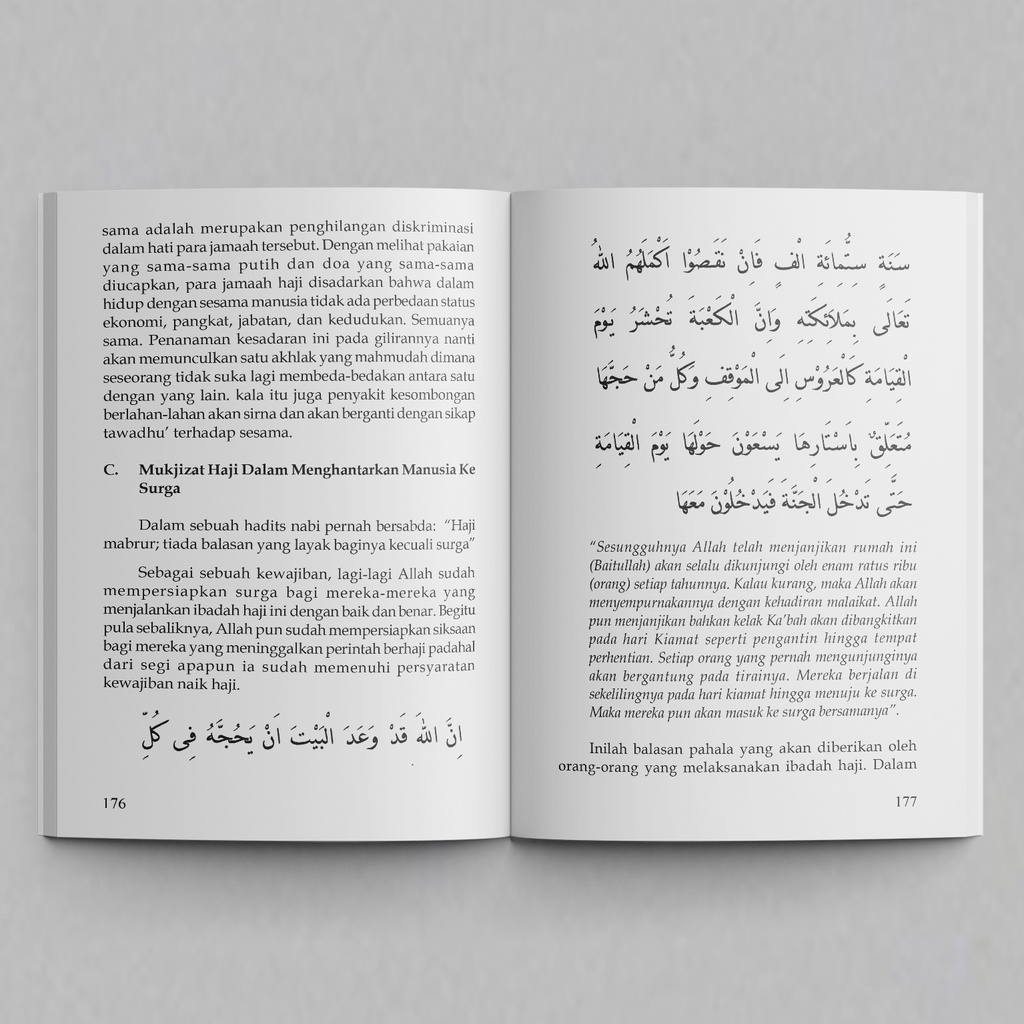 sama adalah merupakan penghilangan diskriminasi
dalam hati para jamaah tersebut. Dengan melihat pakaian
yang sama-sama putih dan doa yang sama-sama
diucapkan, para jamaah haji disadarkan bahwa dalam
hidup dengan sesama manusia tidak ada perbedaan status
ekonomi, pangkat, jabatan, dan kedudukan. Semuanya
sama. Penanaman kesadaran ini pada gilirannya nanti
akan memunculkan satu akhlak yang mahmudah dimana
seseorang tidak suka lagi membeda-bedakan antara satu
dengan yang lain. kala itu juga penyakit kesombongan
berlahan-lahan akan sirna dan akan berganti dengan sikap
tawadhu’ terhadap sesama.
C. Mukjizat Haji Dalam Menghantarkan Manusia Ke
Surga
Dalam sebuah hadits nabi pernah bersabda: “Haji
mabrur; tiada balasan yang layak baginya kecuali surga”
Sebagai sebuah kewajiban, lagi-lagi Allah sudah
mempersiapkan surga bagi mereka-mereka yang
menjalankan ibadah haji ini dengan baik dan benar. Begitu
pula sebaliknya, Allah pun sudah mempersiapkan siksaan
bagi mereka yang meninggalkan perintah berhaji padahal
dari segi apapun ia sudah memenuhi persyaratan
kewajiban naik haji.
اِنَّ اللهَ قَدْ وَعَدَ الْبَيْتَ اَنْ يَحُجَّهُ فِى كُلِّ
176
سَنَةٍ سِتُّمِائَةِ اَلْفٍ فَاِنْ نَقَصُوْا اَكْمَلَهُمُ اللهُ
تَعَالَى بِمَلاَئِكَتِهِ وَاِنَّ الْكَعْبَةَ تُحْشَرُ يَوْمَ
الْقِيَامَةِ كَالْعَرُوْسِ اِلَى الْمَوْقِفِ وَكُلُّ مَنْ حَجَّهَا
مُتَعَلِّقٌ بِاَسْتَارِهَا يَسْعَوْنَ حَوْلَهَا يَوْمَ الْقِيَامَةِ
حَتَّى تَدْخُلَ الْجَنَّةَ فَيَدْخُلُوْنَ مَعَهَا
“Sesungguhnya Allah telah menjanjikan rumah ini
(Baitullah) akan selalu dikunjungi oleh enam ratus ribu
(orang) setiap tahunnya. Kalau kurang, maka Allah akan
menyempurnakannya dengan kehadiran malaikat. Allah
pun menjanjikan bahkan kelak Ka’bah akan dibangkitkan
pada hari Kiamat seperti pengantin hingga tempat
perhentian. Setiap orang yang pernah mengunjunginya
akan bergantung pada tirainya. Mereka berjalan di
sekelilingnya pada hari kiamat hingga menuju ke surga.
Maka mereka pun akan masuk ke surga bersamanya”.
Inilah balasan pahala yang akan diberikan oleh
orang-orang yang melaksanakan ibadah haji. Dalam
177